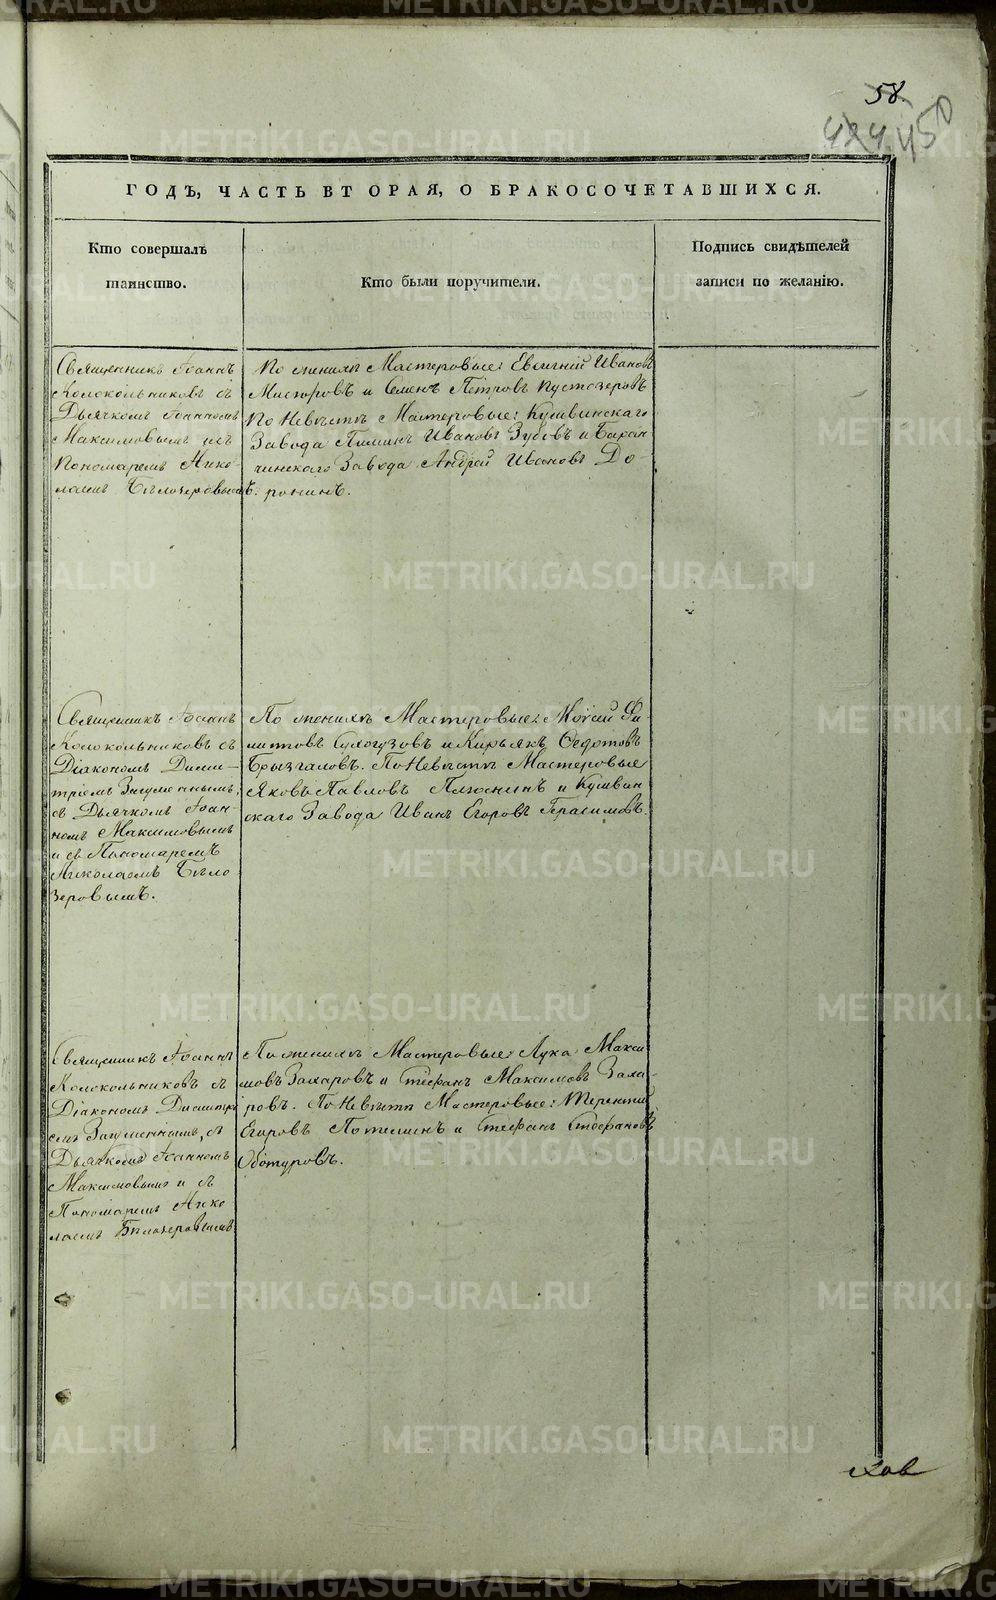 58
424 450
ГОДЪ, ЧАСТЬ ВТОРАЯ, О БРАКОСОЧЕТАВШИХСЯ.
Кто совершалъ
таинство.
Кто были поручители.
Подпись свидѣтелей
записи по желанію.
Священникъ Іоаннъ
Колокольниковъ съ
Дьячкомъ Іоанномъ
Максимовымъ и съ
Пономаремъ Нико-
лаемъ Бѣлозеровымъ.
По женихѣ Мастеровые: Евгений Ивановъ
и Семенъ Петровъ Пустозеровъ
По Невѣстѣ Мастеровые: Кушвинскаго
Завода Пименъ Ивановъ Зубовъ и Баран-
чинскаго Завода Андрей Ивановъ До-
ронинъ.
Священникъ Іоаннъ
Колокольниковъ съ
Діакономъ Дими-
тріемъ
съ Дьячкомъ Іоан-
номъ Максимовымъ
и съ Пономаремъ
Николаемъ Бѣло-
зеровымъ.
По женихѣ Мастеровые: Моѵсей Фи-
липповъ Сухогузовъ и Кирьякъ Федотовъ
Брызгаловъ. По Невѣстѣ Мастеровые
Яковъ Павловъ Плюснинъ и Кушвин-
скаго Завода Иванъ Егоровъ Герасимовъ.
Священникъ Іоаннъ
Колокольниковъ съ
Діакономъ Димитрі-
емъ съ
Дьячкомъ Іоанномъ
Максимовымъ и съ
Пономаремъ Нико-
лаемъ Бѣлозеровымъ
По женихѣ Мастеровые: Лука Макси-
мовъ Захаровъ и Стефанъ Максимовъ Заха-
ровъ. По Невѣстѣ Мастеровые: Терентій
Егоровъ Потепинъ и Стефанъ Стефановъ
Обатуровъ.
METRIKI.GASO-URAL.RU